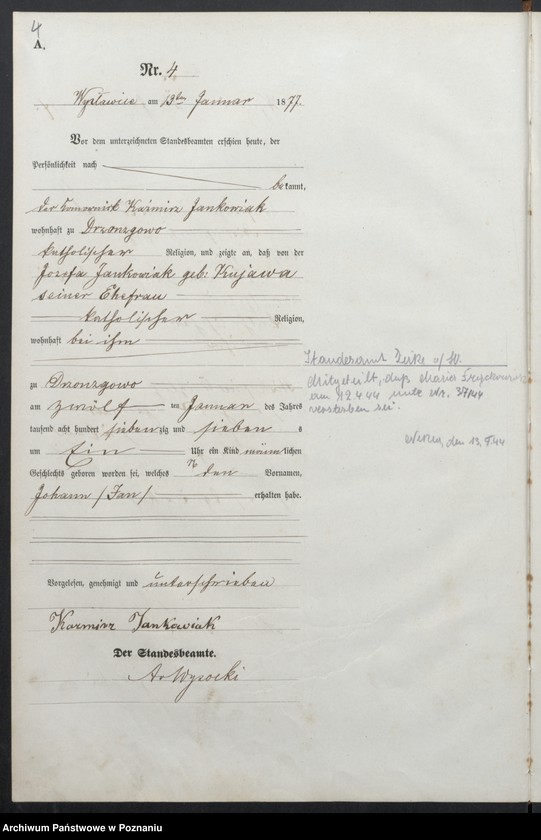 4
A.
Nr. 4
am 13ten Januar 1877.
Vor dem unterzeichneten Standesbeamten erschien heute, der
Persönlichkeit nach
bekannt,
der Komornik Kaźmirz Jankowiak
wohnhaft zu Dronzgowo
katholischer Religion, und zeigte an, daß von der
Jozefa Jankowiak geb: Kujawa
seiner Ehefrau
katholischer Religion,
wohnhaft bei ihm
zu Dronzgowo
am zwölf ten Januar des Jahres
tausend acht hundert siebenzig und sieben
um Ein Uhr ein Kind männlichen
Geschlechts geboren worden sei, welches den Vornamen,
Johann / Jan / erhalten habe.
Vorgelesen, genehmigt und unterschrieben
Kazmirz Jankowiak
Der Standesbeamte.
Wysocki
Standesamt
Mitgeteilt, daß Maria
am 12 4 44 unter Nr. 37/44
verstorben sei.
den 13.
44
Archiwum Państwowe w Poznaniu